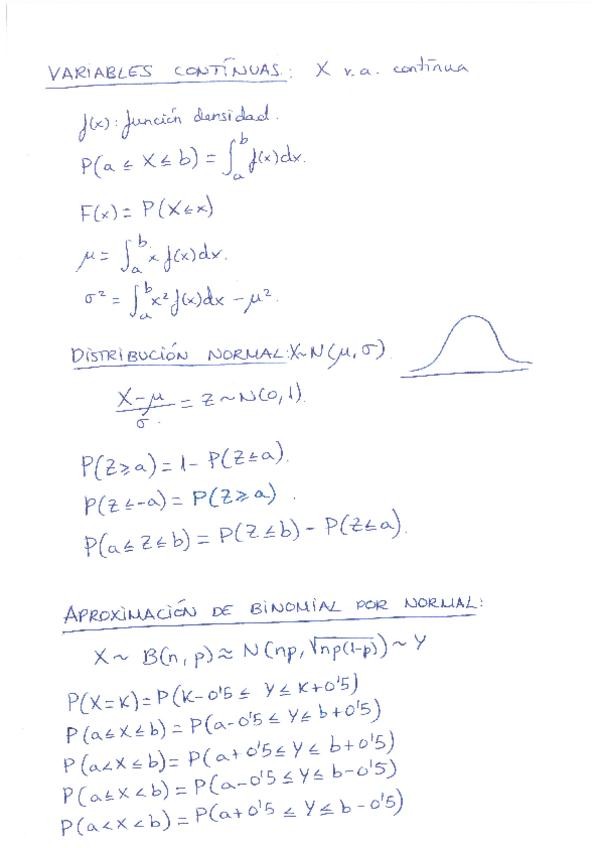 VARIABLES CONTÍNUAS: X v.a. contínua
f(x): función densidad.
P(a ≤ X ≤ b) = ∫_a^b f(x)dx.
F(x) = P(X≤x)
μ = ∫_a^b x f(x)dx.
σ² = ∫_a^b x² f(x)dx - μ².
DISTRIBUCIÓN NORMAL: X~N(μ, σ)
(X-μ)/σ = Z ~ N(0,1).
P(Z≥a) = 1 - P(Z≤a).
P(Z≤-a) = P(Z≥a).
P(a≤Z≤b) = P(Z≤b) - P(Z≤a).
APROXIMACIÓN DE BINOMIAL POR NORMAL:
X ~ B(n, p) ≈ N(np, √np(1-p)) ~ Y
P(X=K) = P(K-0'5 ≤ Y ≤ K+0'5)
P(a≤X≤b) = P(a-0'5 ≤ Y ≤ b+0'5)
P(a<X≤b) = P(a+0'5 ≤ Y ≤ b+0'5)
P(a≤X<b) = P(a-0'5 ≤ Y ≤ b-0'5)
P(a<X<b) = P(a+0'5 ≤ Y ≤ b-0'5)